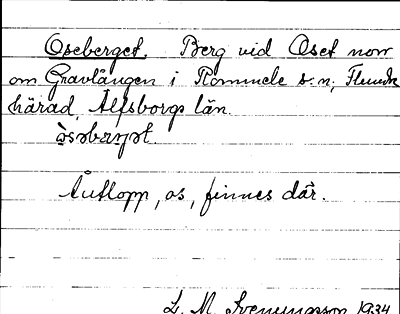 Oseberget. Berg vid Oset norr
om Gravlången i Rommele s:n, Flundre
härad, Älfsborgs län.
Åutlopp, os, finnes där.
L. M. Svenungsson 1934